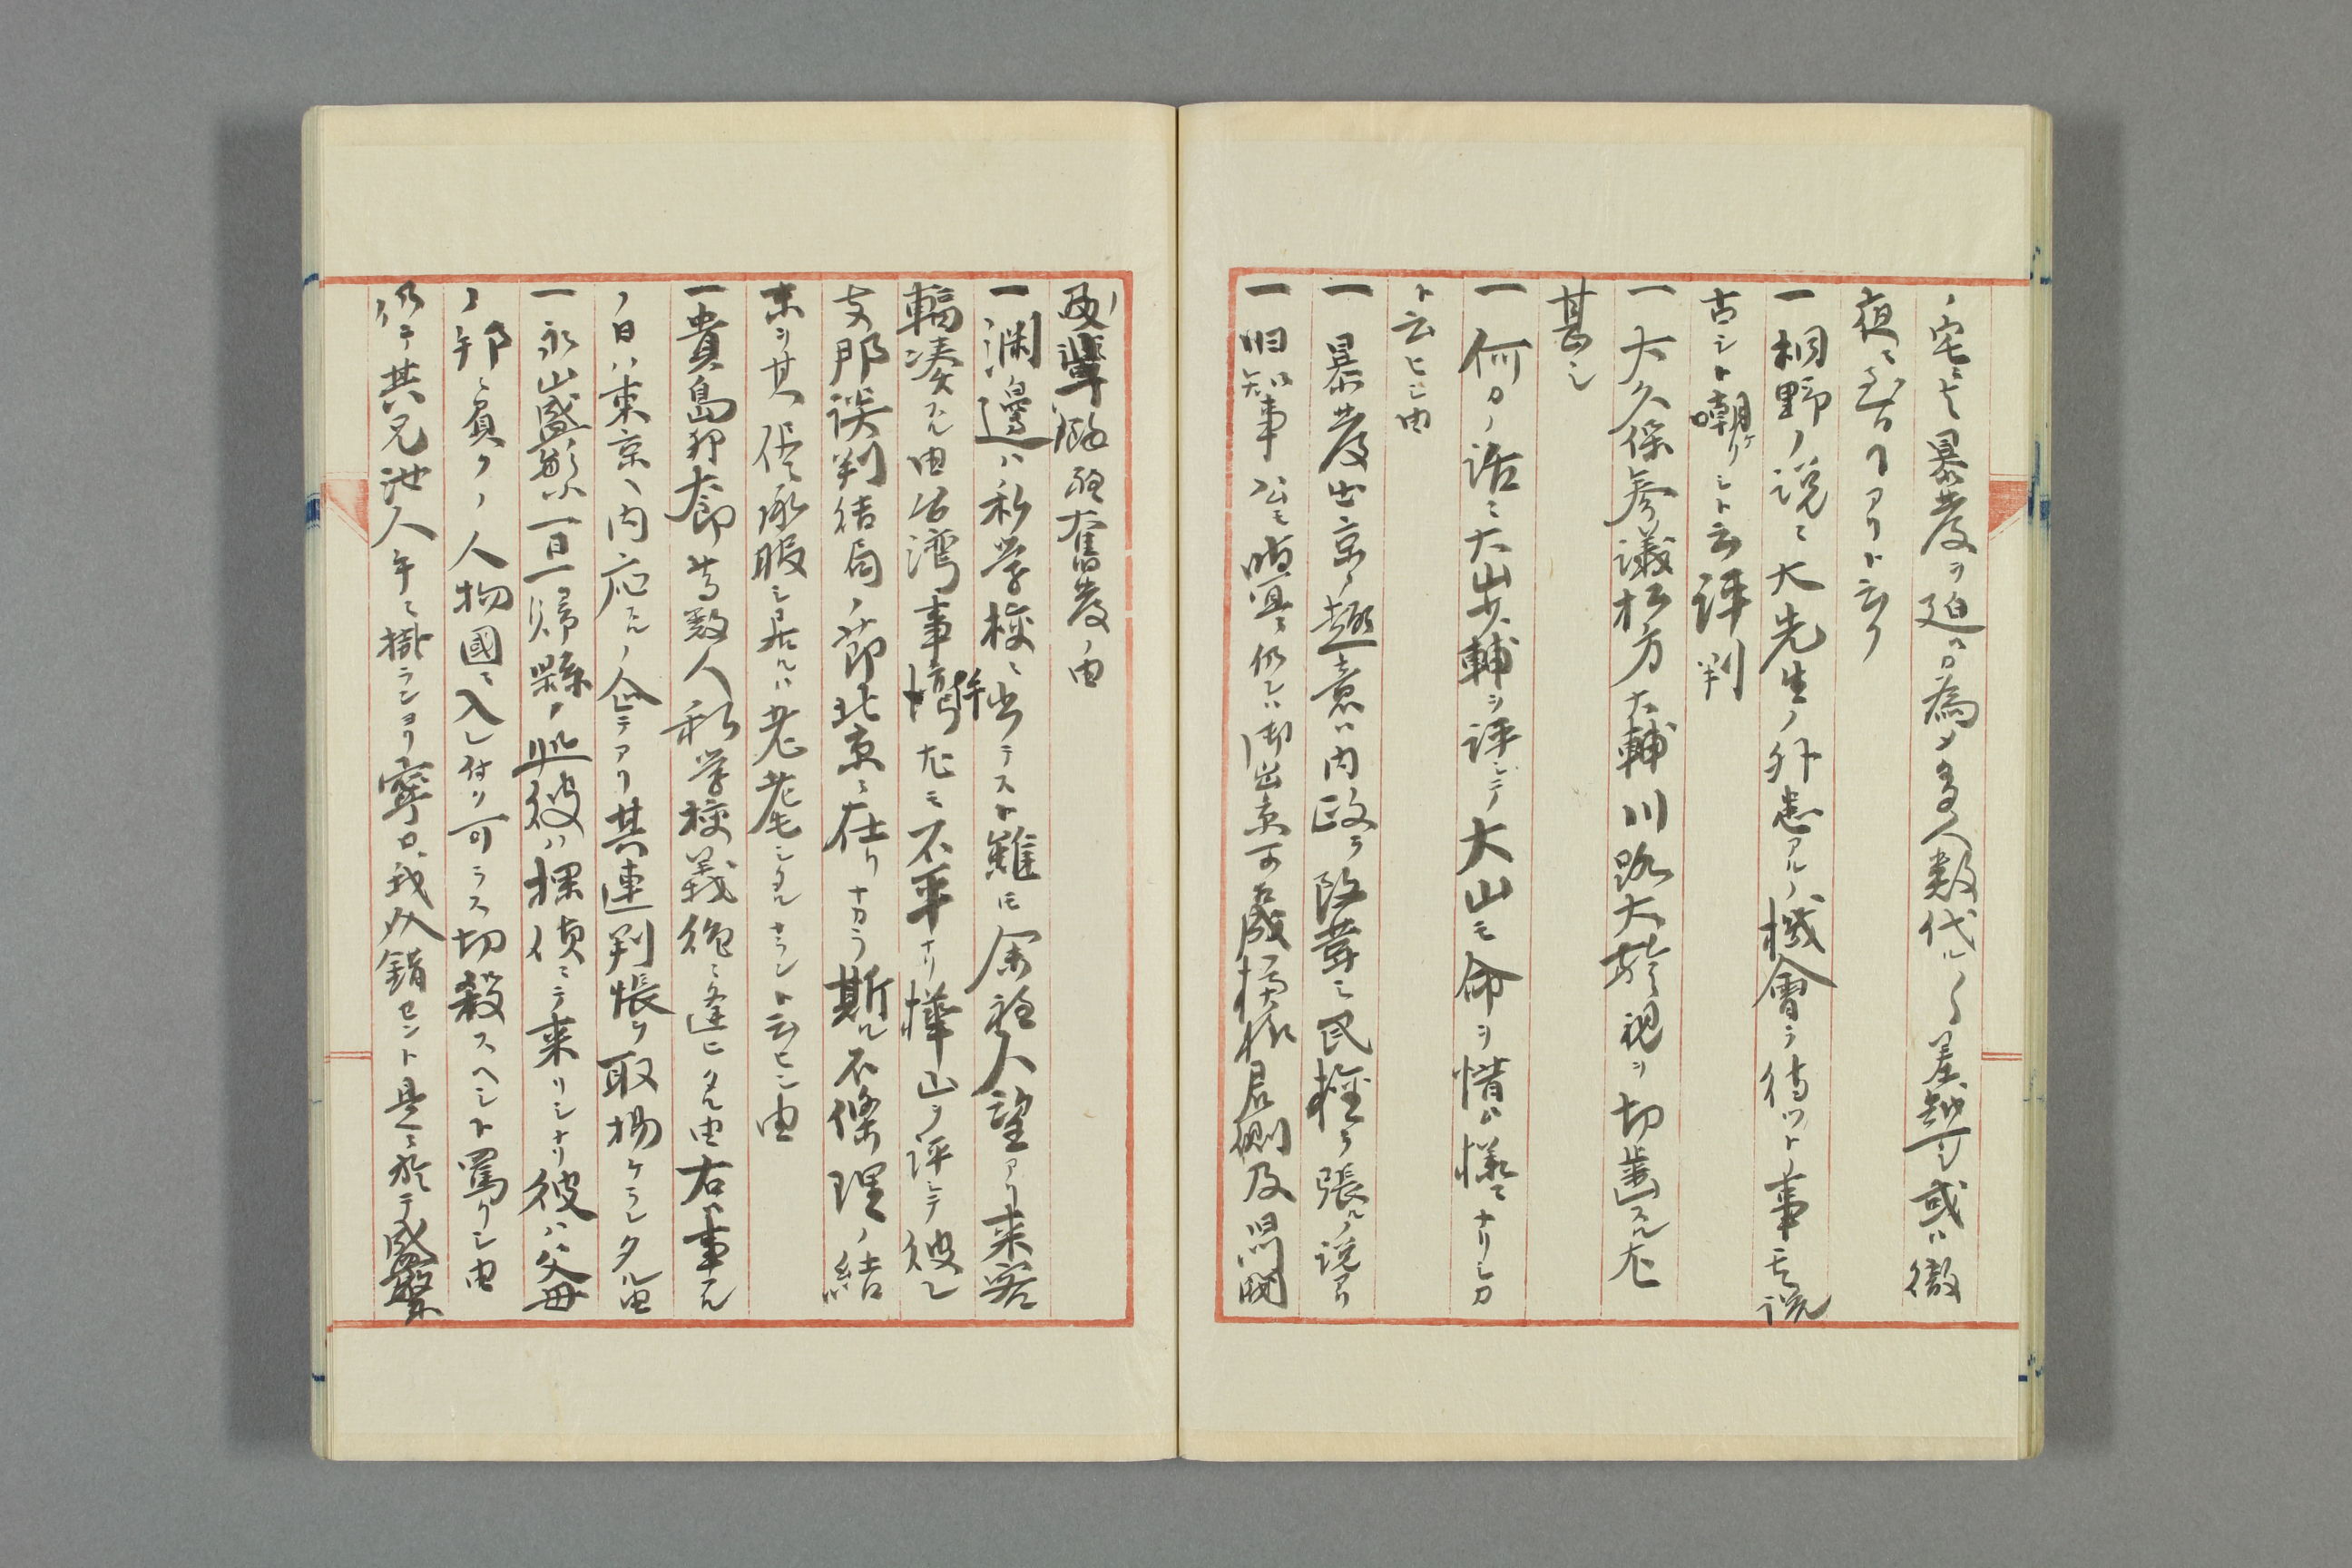 ノ宅ニモ暴発ヲ迫ルカ為メ多人数代ル〱差越シ或ハ徹
夜ニ至ルヿアリト云フ
一桐野ノ説ニ大先生ノ外患アルノ機會ヲ待ツトノ事其説
古シト嘲リシト云評判
一大久保参議松方大輔川路大警視ヲ切歯スル尤
甚シ
一何カノ話ニ大山少輔ヲ評シテ大山モ命ヲ惜ム様ニナリシカ
ト云ヒシ由
一暴発出京ノ趣意ハ内政ヲ改革シ民権ヲ張ルノ説アリ
一旧知事公モ
御出京可
君側及
輩
奮発ノ由
一渕邉ハ私学校ニ出テスト雖モ余程人望アリ来客
輻湊スル由台湾事情尤モ不平ナリ樺山ヲ評シテ彼レ
支那談判結局ノ節北京ニ在リナカラ斯ル不條理ノ結
末ヲ其侭承服シ居ルハ老耄シタルナラント云ヒシ由
一貴島卯太郎等数人私学校義絶ニ逢ヒタル由右ハ事アル
ノ日ハ東京ヘ内応スルノ企テアリ其連判帳ヲ取揚ケラレタル由
一永山盛繁一日帰縣ノ処彼ハ探偵ニテ来リシナリ彼ハ父母
ノ邦ニ負クノ人物國ニ入レ付ク可ラス切殺スヘシト罵リシ由
仍テ其兄他人ノ手ニ掛ランヨリ寧ロ我
錯セント是ニ於テ盛繁